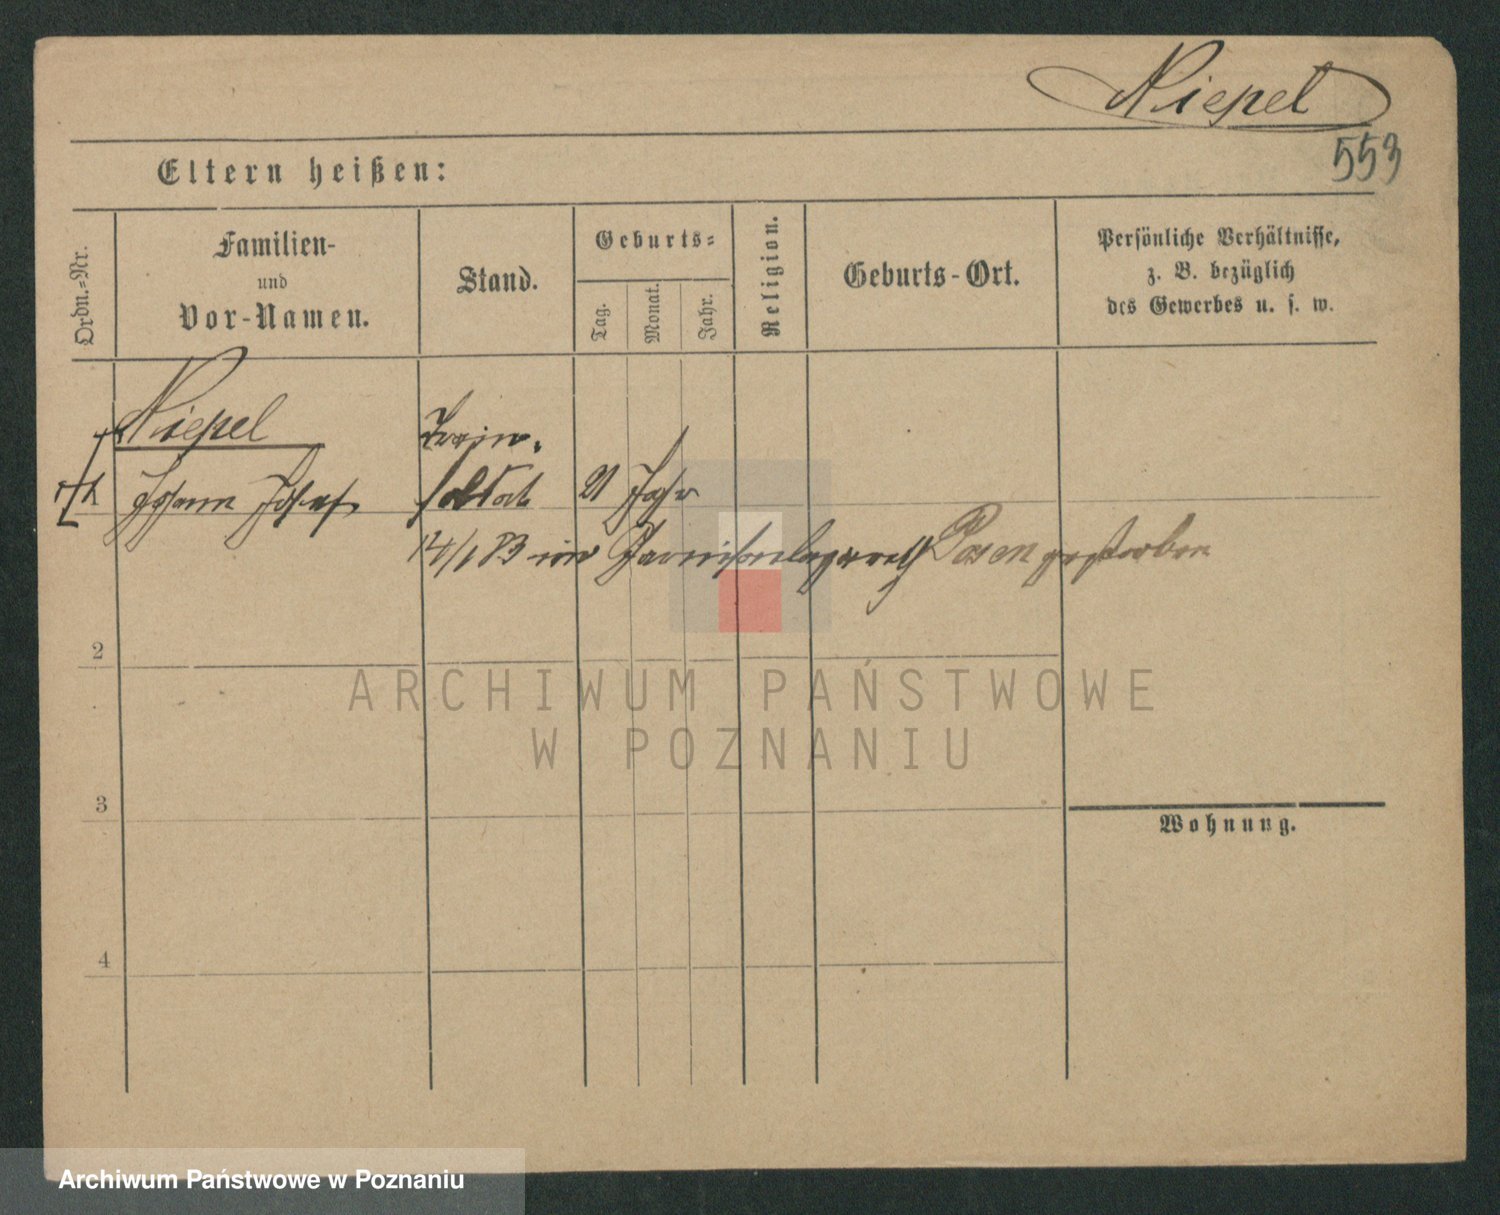 Niepel
553
Eltern heißen:
Ordn.-Nr.
Familien-
und
Vor-Namen.
Stand.
Geburts-
Tag.
Monat.
Jahr.
Religion.
Geburts-Ort.
Persönliche Verhältnisse,
z. B. bezüglich
des Gewerbes u. s. w.
Niepel
Train-
Johann Josef
soldat
21 Jahr
14/1 83 im Garnisonlazareth Posen gestorben
2
3
4
Wohnung.
ARCHIWUM PAŃSTWOWE
W POZNANIU
Archiwum Państwowe w Poznaniu